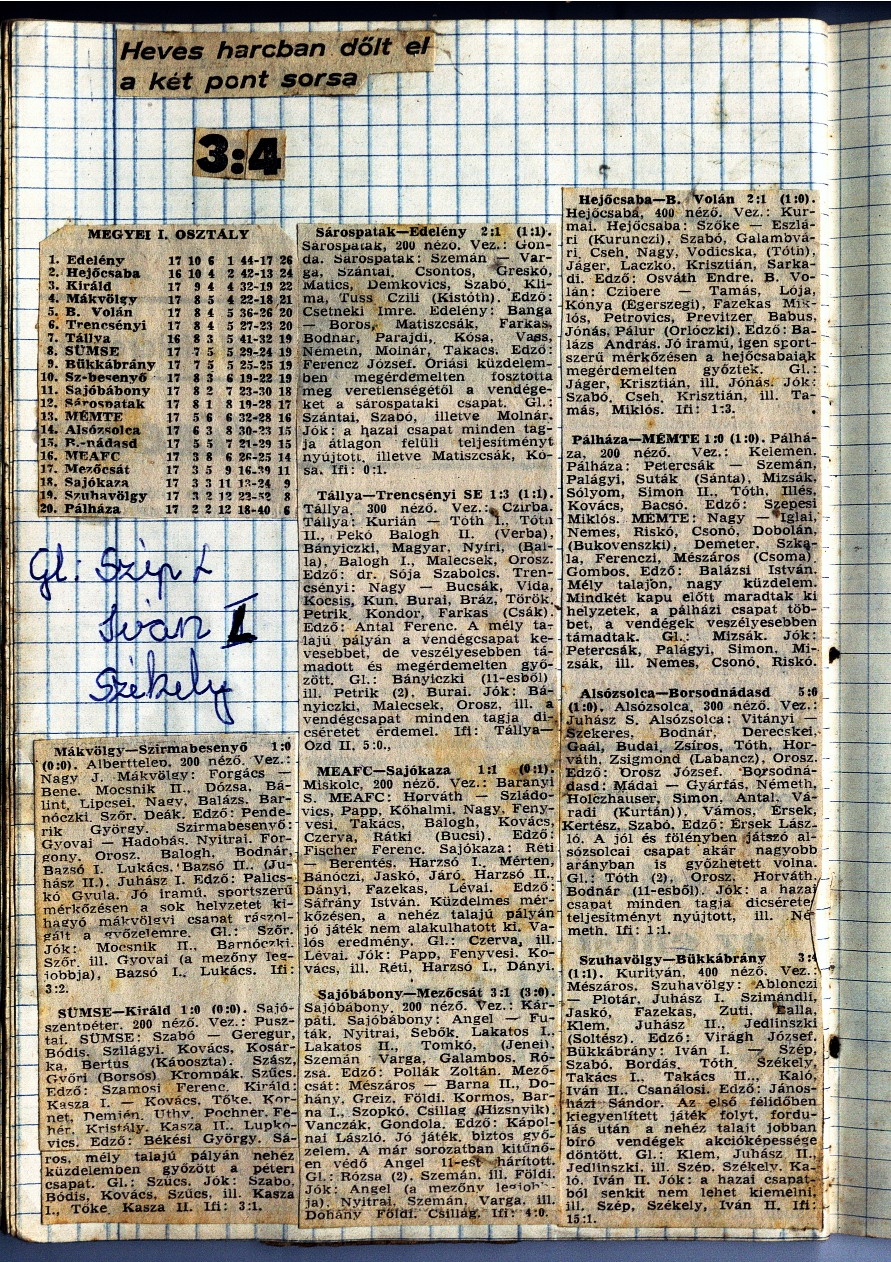 Heves harcban dőlt el
a két pont sorsa
3:4
MEGYEI I. OSZTÁLY
1. Edelény 17 10 6 1 44-17 26
2. Hejőcsaba 16 10 4 2 42-13 24
3. Királd 17 9 4 4 32-19 22
4. Mákvölgy 17 8 5 4 22-18 21
5. B. Volán 17 8 4 5 36-26 20
6. Trencsényi 17 8 4 5 27-23 20
7. Tállya 16 8 3 5 41-32 19
8. SÜMSE 17 7 5 5 29-24 19
9. Bükkábrány 17 7 5 5 25-25 19
10. Sz-besenyő 17 8 3 6 19-22 19
11. Sajóbábony 17 8 2 7 23-30 18
12. Sárospatak 17 8 1 8 19-28 17
13. MÉMTE 17 5 6 6 32-28 16
14. Alsózsolca 17 6 3 8 30-23 15
15. B.-nádasd 17 5 5 7 21-29 15
16. MEAFC 17 3 8 6 26-25 14
17. Mezőcsát 17 3 5 9 16-39 11
18. Sajókaza 17 3 3 11 13-24 9
19. Szuhavölgy 17 3 2 12 23-52 8
20. Pálháza 17 2 2 12 18-40 6
Gl: Szép I
Iván I
Székely
Mákvölgy—Szirmabesenyő 1:0
(0:0). Alberttelep, 200 néző. Vez.:
Nagy J. Mákvölgy: Forgács —
Bene. Mocsnik II., Dózsa, Bá-
lint, Lipcsei, Nagy, Balázs, Bar-
nóczki. Szőr. Deák. Edző: Pende-
rik György. Szirmabesenyő:
Gyovai — Hadobás, Nyitrai, For-
gony. Orosz. Balogh, Bodnár,
Bazsó I. Lukács, Bazsó II., (Ju-
hász II.). Juhász I. Edző: Palics-
kó Gyula. Jó iramú, sportszerű
mérkőzésen a sok helyzetet ki-
hagyó mákvölgyi csapat rászol-
gált a győzelemre. Gl.: Szőr.
Jók: Mocsnik II., Barnóczki.
Szőr. ill. Gyovai (a mezőny leg-
jobbja), Bazsó I., Lukács. Ifi:
3:2.
SÜMSE—Királd 1:0 (0:0). Sajó-
szentpéter. 200 néző. Vez.: Pusz-
tai. SÜMSE: Szabó — Geregur,
Bódis, Szilágyi, Kovács, Kosár-
ka, Bertus (Káposzta). Szász,
Győri (Borsós). Krompák. Szűcs.
Edző: Szamosi Ferenc. Királd:
Kasza I. — Kovács, Tőke, Kor-
net, Demién, Uthy, Pochner, Fe-
hér, Kristály. Kasza II., Lupko-
vics. Edző: Békési György. Sá-
ros, mély talajú pályán nehéz
küzdelemben győzött a péteri
csapat. Gl.: Szűcs. Jók: Szabó,
Bódis, Kovács, Szűcs, ill. Kasza
I., Tőke, Kasza II. Ifi: 3:1.
Sárospatak—Edelény 2:1 (1:1).
Sárospatak, 200 néző. Vez.: Gon-
da. Sárospatak: Szemán — Var-
ga, Szántai, Csontos, Greskó,
Matics, Demkovics, Szabó, Kli-
ma, Tuss, Czili (Kistóth). Edző:
Csetneki Imre. Edelény: Banga
— Boros, Matiszcsák, Farkas,
Bodnár, Parajdi, Kósa, Vass,
Németh, Molnár, Takács. Edző:
Ferencz József. Óriási küzdelem-
ben megérdemelten fosztotta
meg veretlenségétől a vendége-
ket a sárospataki csapat. Gl.:
Szántai, Szabó, illetve Molnár.
Jók: a hazai csapat minden tag-
ja átlagon felüli teljesítményt
nyújtott, illetve Matiszcsák, Kó-
sa. Ifi: 0:1.
Tállya—Trencsényi SE 1:3 (1:1).
Tállya, 300 néző. Vez.: Czirba.
Tállya: Kurián — Tóth I., Tóth
II., Pekó Balogh II. (Verba),
Bányiczki, Magyar, Nyíri, (Bal-
la), Balogh I., Malecsek, Orosz.
Edző: dr. Sója Szabolcs. Tren-
csényi: Nagy — Bucsák, Vida,
Kocsis, Kun, Burai, Bráz, Török,
Petrik, Kondor, Farkas (Csák).
Edző: Antal Ferenc. A mély ta-
lajú pályán a vendégcsapat ke-
vesebbet, de veszélyesebben tá-
madott és megérdemelten győ-
zött. Gl.: Bányiczki (11-esből)
ill. Petrik (2), Burai. Jók: Bá-
nyiczki, Malecsek, Orosz, ill. a
vendégcsapat minden tagja di-
cséretet érdemel. Ifi: Tállya—
Ózd II. 5:0.,
MEAFC—Sajókaza 1:1 (0:1).
Miskolc, 200 néző. Vez.: Baranyi
S. MEAFC: Horváth — Szládo-
vics, Papp, Kőhalmi, Nagy, Feny-
vesi, Takács, Balogh, Kovács,
Czerva, Rátki (Bucsi). Edző:
Fischer Ferenc. Sajókaza: Réti
— Berentés, Harzsó I., Mérten,
Bánóczi, Jaskó, Járó, Harzsó II.,
Dányi, Fazekas, Lévai. Edző:
Sáfrány István. Küzdelmes mér-
kőzésen, a nehéz talajú pályán
jó játék nem alakulhatott ki. Va-
lós eredmény. Gl.: Czerva, ill.
Lévai. Jók: Papp, Fenyvesi. Ko-
vács, ill. Réti, Harzsó I., Dányi.
Sajóbábony—Mezőcsát 3:1 (3:0).
Sajóbábony, 200 néző. Vez.: Kár-
páti. Sajóbábony: Angel — Fu-
ták, Nyitrai, Sebők, Lakatos I.,
Lakatos II., Tomkó, (Jenei).
Szemán Varga, Galambos, Ró-
zsa. Edző: Pollák Zoltán. Mező-
csát: Mészáros — Barna II., Do-
hány, Greiz, Földi. Kormos, Bar-
na I., Szopkó, Csillag (Hizsnyik).
Vanczák, Gondola. Edző: Kápol-
nai László. Jó játék, biztos győ-
zelem. A már sorozatban kitűnő-
en védő Angel 11-est hárított.
Gl.: Rózsa (2). Szemán, ill. Földi.
Jók: Angel (a mezőny legjobb-
ja), Nyitrai, Szemán, Varga, ill.
Dohány Földi, Csillag. Ifi: 4:0.
Hejőcsaba—B. Volán 2:1 (1:0).
Hejőcsaba, 400 néző. Vez.: Kur-
mai. Hejőcsaba: Szőke — Eszlá-
ri (Kurunczi), Szabó, Galambvá-
ri, Cseh, Nagy, Vodicska, (Tóth),
Jáger, Laczkó, Krisztián, Sarka-
di. Edző: Osváth Endre. B. Vo-
lán: Czibere — Tamás, Lója,
Kónya (Egerszegi), Fazekas Mik-
lós, Petrovics, Previtzer, Babus,
Jónás, Pálur (Orlóczki). Edző: Ba-
lázs András. Jó iramú, igen sport-
szerű mérkőzésen a hejőcsabaiak
megérdemelten győztek. Gl.:
Jáger, Krisztián, ill. Jónás. Jók:
Szabó, Cseh, Krisztián, ill. Ta-
más, Miklós. Ifi: 1:3.
Pálháza—MÉMTE 1:0 (1:0). Pálhá-
za, 200 néző. Vez.: Kelemen.
Pálháza: Petercsák — Szemán,
Palágyi, Suták (Sánta), Mizsák,
Sólyom, Simon II., Tóth, Illés,
Kovács, Bacsó. Edző: Szepesi
Miklós. MÉMTE: Nagy — Iglai,
Nemes, Riskó, Csonó, Dobolán,
(Bukovenszki), Demeter, Szka-
la, Ferenczi, Mészáros (Csoma)
Gombos. Edző: Balázsi István.
Mély talajon, nagy küzdelem.
Mindkét kapu előtt maradtak ki
helyzetek, a pálházi csapat töb-
bet, a vendégek veszélyesebben
támadtak. Gl.: Mizsák. Jók:
Petercsák, Palágyi, Simon, Mi-
zsák, ill. Nemes, Csonó, Riskó.
Alsózsolca—Borsodnádasd 5:0
(1:0). Alsózsolca, 300 néző. Vez.:
Juhász S. Alsózsolca: Vitányi —
Szekeres, Bodnár, Derecskei,
Gaál, Budai, Zsíros, Tóth, Hor-
váth, Zsigmond (Labancz), Orosz.
Edző: Orosz József. Borsodná-
dasd: Mádai — Gyárfás, Németh,
Holczhauser, Simon, Antal, Vá-
radi (Kurtán)), Vámos, Érsek,
Kertész, Szabó. Edző: Érsek Lász-
ló. A jól és fölényben játszó al-
sózsolcai csapat akár nagyobb
arányban is győzhetett volna.
Gl.: Tóth (2), Orosz, Horváth,
Bodnár (11-esből). Jók: a hazai
csapat minden tagja dicséretes
teljesítményt nyújtott, ill. Né-
meth. Ifi: 1:1.
Szuhavölgy—Bükkábrány 3:4
(1:1). Kurityán, 400 néző. Vez.:
Mészáros. Szuhavölgy: Ablonczi
— Plotár, Juhász I. Szimándli,
Jaskó, Fazekas, Zuti, Balla,
Klem, Juhász II., Jedlinszki
(Soltész). Edző: Virágh József.
Bükkábrány: Iván I. — Szép,
Szabó, Bordás, Tóth, Székely,
Takács I., Takács II., Kaló,
Iván II., Csanálosi. Edző: János-
házi Sándor. Az első félidőben
kiegyenlített játék folyt, fordu-
lás után a nehéz talajt jobban
bíró vendégek akcióképessége
döntött. Gl.: Klem, Juhász II.,
Jedlinszki, ill. Szép, Székely, Ka-
ló, Iván II. Jók: a hazai csapat-
ból senkit nem lehet kiemelni,
ill. Szép, Székely, Iván II. Ifi:
15:1.